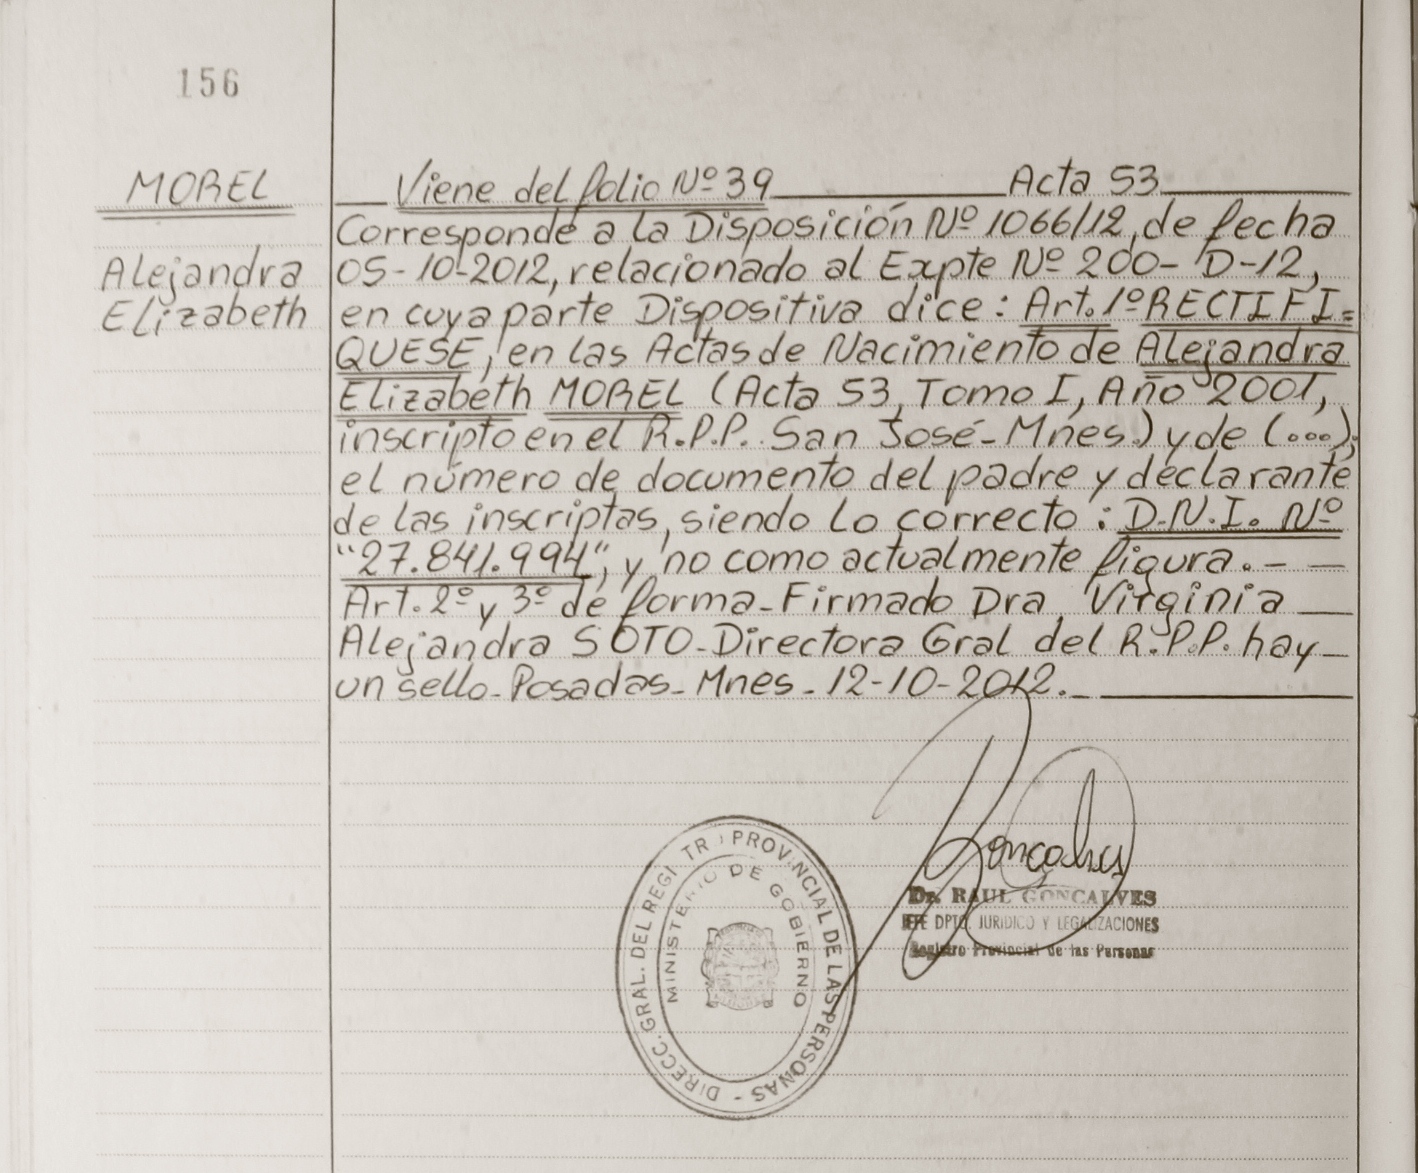 156
MOREL
Alejandra
Elizabeth
Viene del folio Nº 39 Acta 53
Corresponde a la Disposición Nº 1066/12, de fecha
05-10-2012, relacionado al Expte Nº 200- D-12,
en cuya parte Dispositiva dice: Art. 1º RECTIFI=
QUESE, en las Actas de Nacimiento de Alejandra
Elizabeth MOREL (Acta 53, Tomo I, Año 2001,
inscripto en el R.P.P. San José-Mnes.) y de (...),
el número de documento del padre y declarante
de las inscriptas, siendo lo correcto: D.N.I. Nº
"27.841.994", y no como actualmente figura. - -
Art. 2º y 3º de forma-Firmado Dra. Virginia
Alejandra SOTO-Directora Gral del R.P.P. hay
un sello-Posadas-Mnes-12-10-2012.
Goncalves
Dr. RAUL GONCALVES
JEFE DPTO. JURIDICO Y LEGALIZACIONES
Registro Provincial de las Personas
DIRECC. GRAL. DEL REGISTRO PROVINCIAL DE LAS PERSONAS -
MINISTERIO DE GOBIERNO